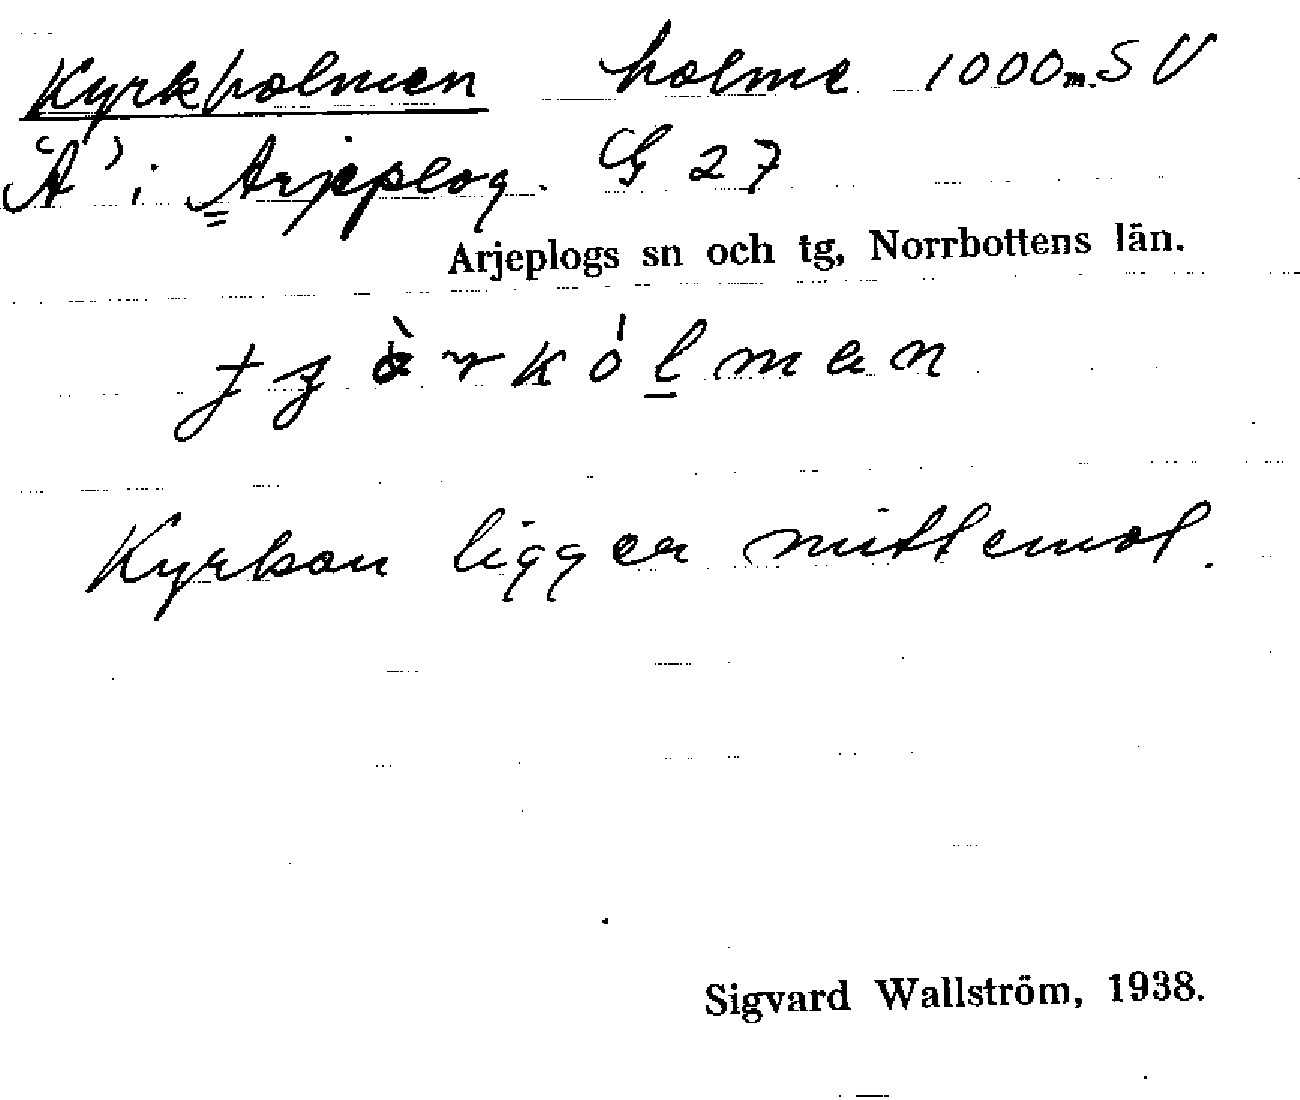 Kyrkholmen holme 1000 m. SV
"A" i Arjeplog. G 27
Arjeplogs sn och tg, Norrbottens län.
Kyrkan ligger mittemot.
Sigvard Wallström, 1938.